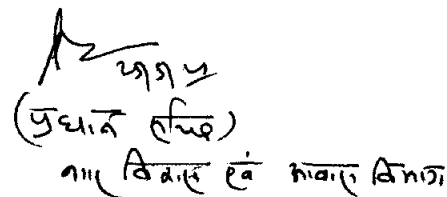 (प्रधान सचिव)
नगर विकास एवं आवास विभाग